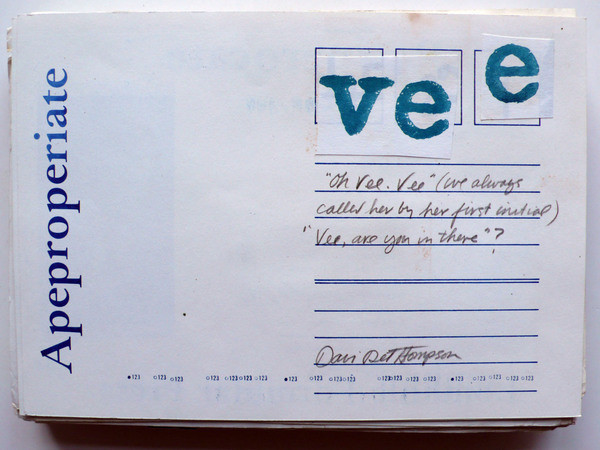 Apeproperiate
vee
"Oh Vee. Vee" (we always
called her by her first initial)
"Vee, are you in there"?
Davi Det Hompson
●123 ○123 ○123 ○123 ○123 ○123 ○123 ●123 ○123 ○123 ○123 ○123 ○123 ○123 ○123 ●123 ○123 ○123 ○123 ○123